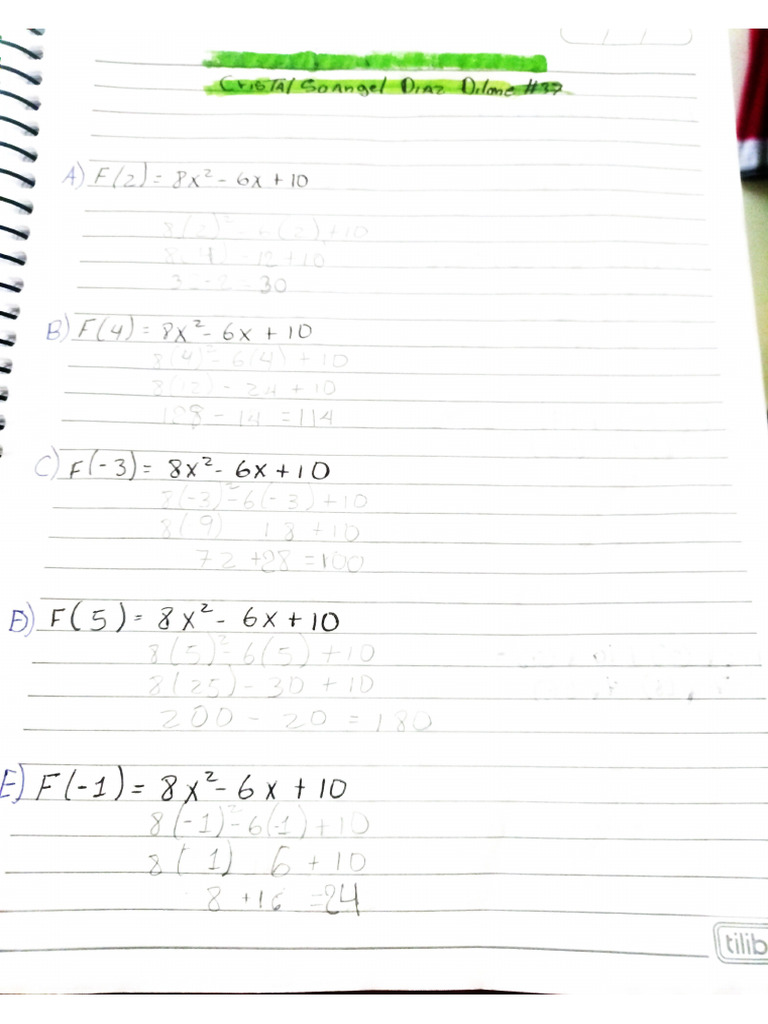 Cristal Soangel Diaz Dilone #37
A) F(2) = 8x² - 6x + 10
8(2)² - 6(2) + 10
8(4) - 12 + 10
3 - 2 = 30
B) F(4) = 8x² - 6x + 10
8(4)² - 6(4) + 10
8(12) - 24 + 10
128 - 14 = 114
C) F(-3) = 8x² - 6x + 10
8(-3)² - 6(-3) + 10
8(9) 18 + 10
72 + 28 = 100
D) F(5) = 8x² - 6x + 10
8(5)² - 6(5) + 10
8(25) - 30 + 10
200 - 20 = 180
E) F(-1) = 8x² - 6x + 10
8(-1)² - 6(-1) + 10
8(1) 6 + 10
8 + 16 = 24
tilib